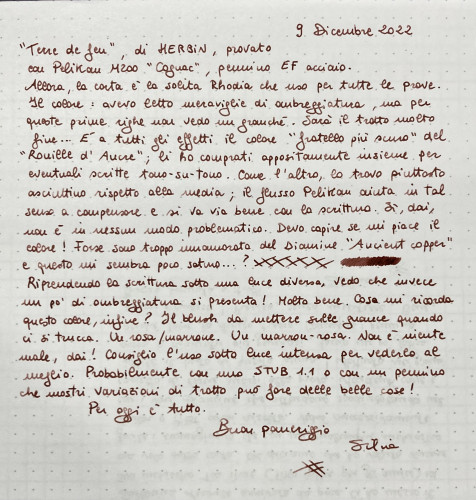 9 Dicembre 2022
"Terre de feu", di HERBIN, provato
con Pelikan M200 "Cognac", pennino EF acciaio.
Allora, la carta è la solita Rhodia che uso per tutte le prove.
Il colore: avevo letto meraviglie di ombreggiatura, ma per
queste prime righe non vedo un granché. Sarà il tratto molto
fine... È a tutti gli effetti il colore "fratello più scuro" del
"Rouille d'Ancre"; li ho comprati appositamente insieme per
eventuali scritte tono-su-tono. Come l'altro, lo trovo piuttosto
asciuttino rispetto alla media; il flusso Pelikan aiuta in tal
senso a compensare e si va via bene con la scrittura. Sì, dai,
non è in nessun modo problematico. Devo capire se mi piace il
colore! Forse sono troppo innamorata del Diamine "Ancient copper"
e questo mi sembra poco saturo...?
Riprendendo la scrittura sotto una luce diversa, vedo che invece
un po' di ombreggiatura si presenta! Molto bene. Cosa mi ricorda
questo colore, infine? Il blush da mettere sulle guance quando
ci si trucca. Un rosa/marrone. Un marron-rosa. Non è niente
male, dai! Consiglio l'uso sotto luce intensa per vederlo al
meglio. Probabilmente con uno STUB 1.1 o con un pennino
che mostri variazioni di tratto può fare delle belle cose!
Per oggi è tutto.
Buon pomeriggio
Silvia